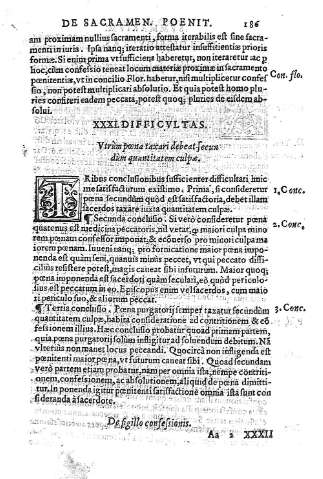 DE SACRAMEN. POENIT. 186
am proximam nullius sacramenti, forma iterabilis est sine sacra-
menti in iuris. Ipsa nanq; iteratio attestatur insufficientiæ prioris
formæ. Si enim prima vt sufficiens haberetur, non iteraretur ac p
hoc, cùm confessio teneat locum materiæ proximæ in sacramento
pœnitentiæ, vt in concilio Flor. habetur, nisi multiplicetur confes
sio, non potest multiplicari absolutio. Et quia potest homo plu-
ries confiteri eadem peccata, potest quoq; pluries de eisdem ab-
solui.
Con. flo.
XXXI. DIFFICVLTAS.
Vtrùm pœna taxari debeat secun
dùm quantitatem culpæ.
TRibus conclusionibus sufficienter difficultati huic
me satisfacturum existimo. Prima, si consideretur
pœna secundùm quòd est satisfactoria, debet illam
sacerdos taxare iuxta quantitatem culpæ.
1. Conc.
¶ Secunda conclusio. Si verò consideretur pœna
quatenus est medicina peccatoris, nil vetat, q; maiori culpa mino
rem pœnam confessor imponat; & ecōuerso pro minori culpa ma
iorem pœnam. Iuueni nanq; pro fornicatione maior pœna impo-
nenda est quàm seni, quamuis minùs peccet, vt qui peccato diffi-
ciliùs resistere potest, magis caneat sibi infuturum. Maior quoq;
pœna imponenda est sacerdoti quàm seculari, eò quòd periculo-
sius est peccatum in eo. Episcopus enim vel sacerdos, cum maio
ri periculo suo, & aliorum peccat.
2. Conc.
¶ Tertia conclusio. Pœna purgatorij semper taxatur secundùm
quantitatem culpæ, habita consideratione ad contritionem & cō
fessionem illius. Hæc conclusio probatur quoad primam partem,
quia pœna purgatorij solùm infligitur ad soluendum debitum. Nā
vlteriùs non manet locus peccandi. Quocirca non infligenda est
pœnitenti maior pœna, vt in futurum caueat sibi. Quoad secundam
verò partem etiam probatur, nàm per omnia ista, nempe contriti-
onem, confessionem, ac absolutionem, aliquid de pœna dimitti-
tur, in ponenda igitur pœnitenti satisfactione omnia ista sunt con
sideranda à sacerdote.
3. Conc.
De sigillo confessionis.
Aa 2 XXXII